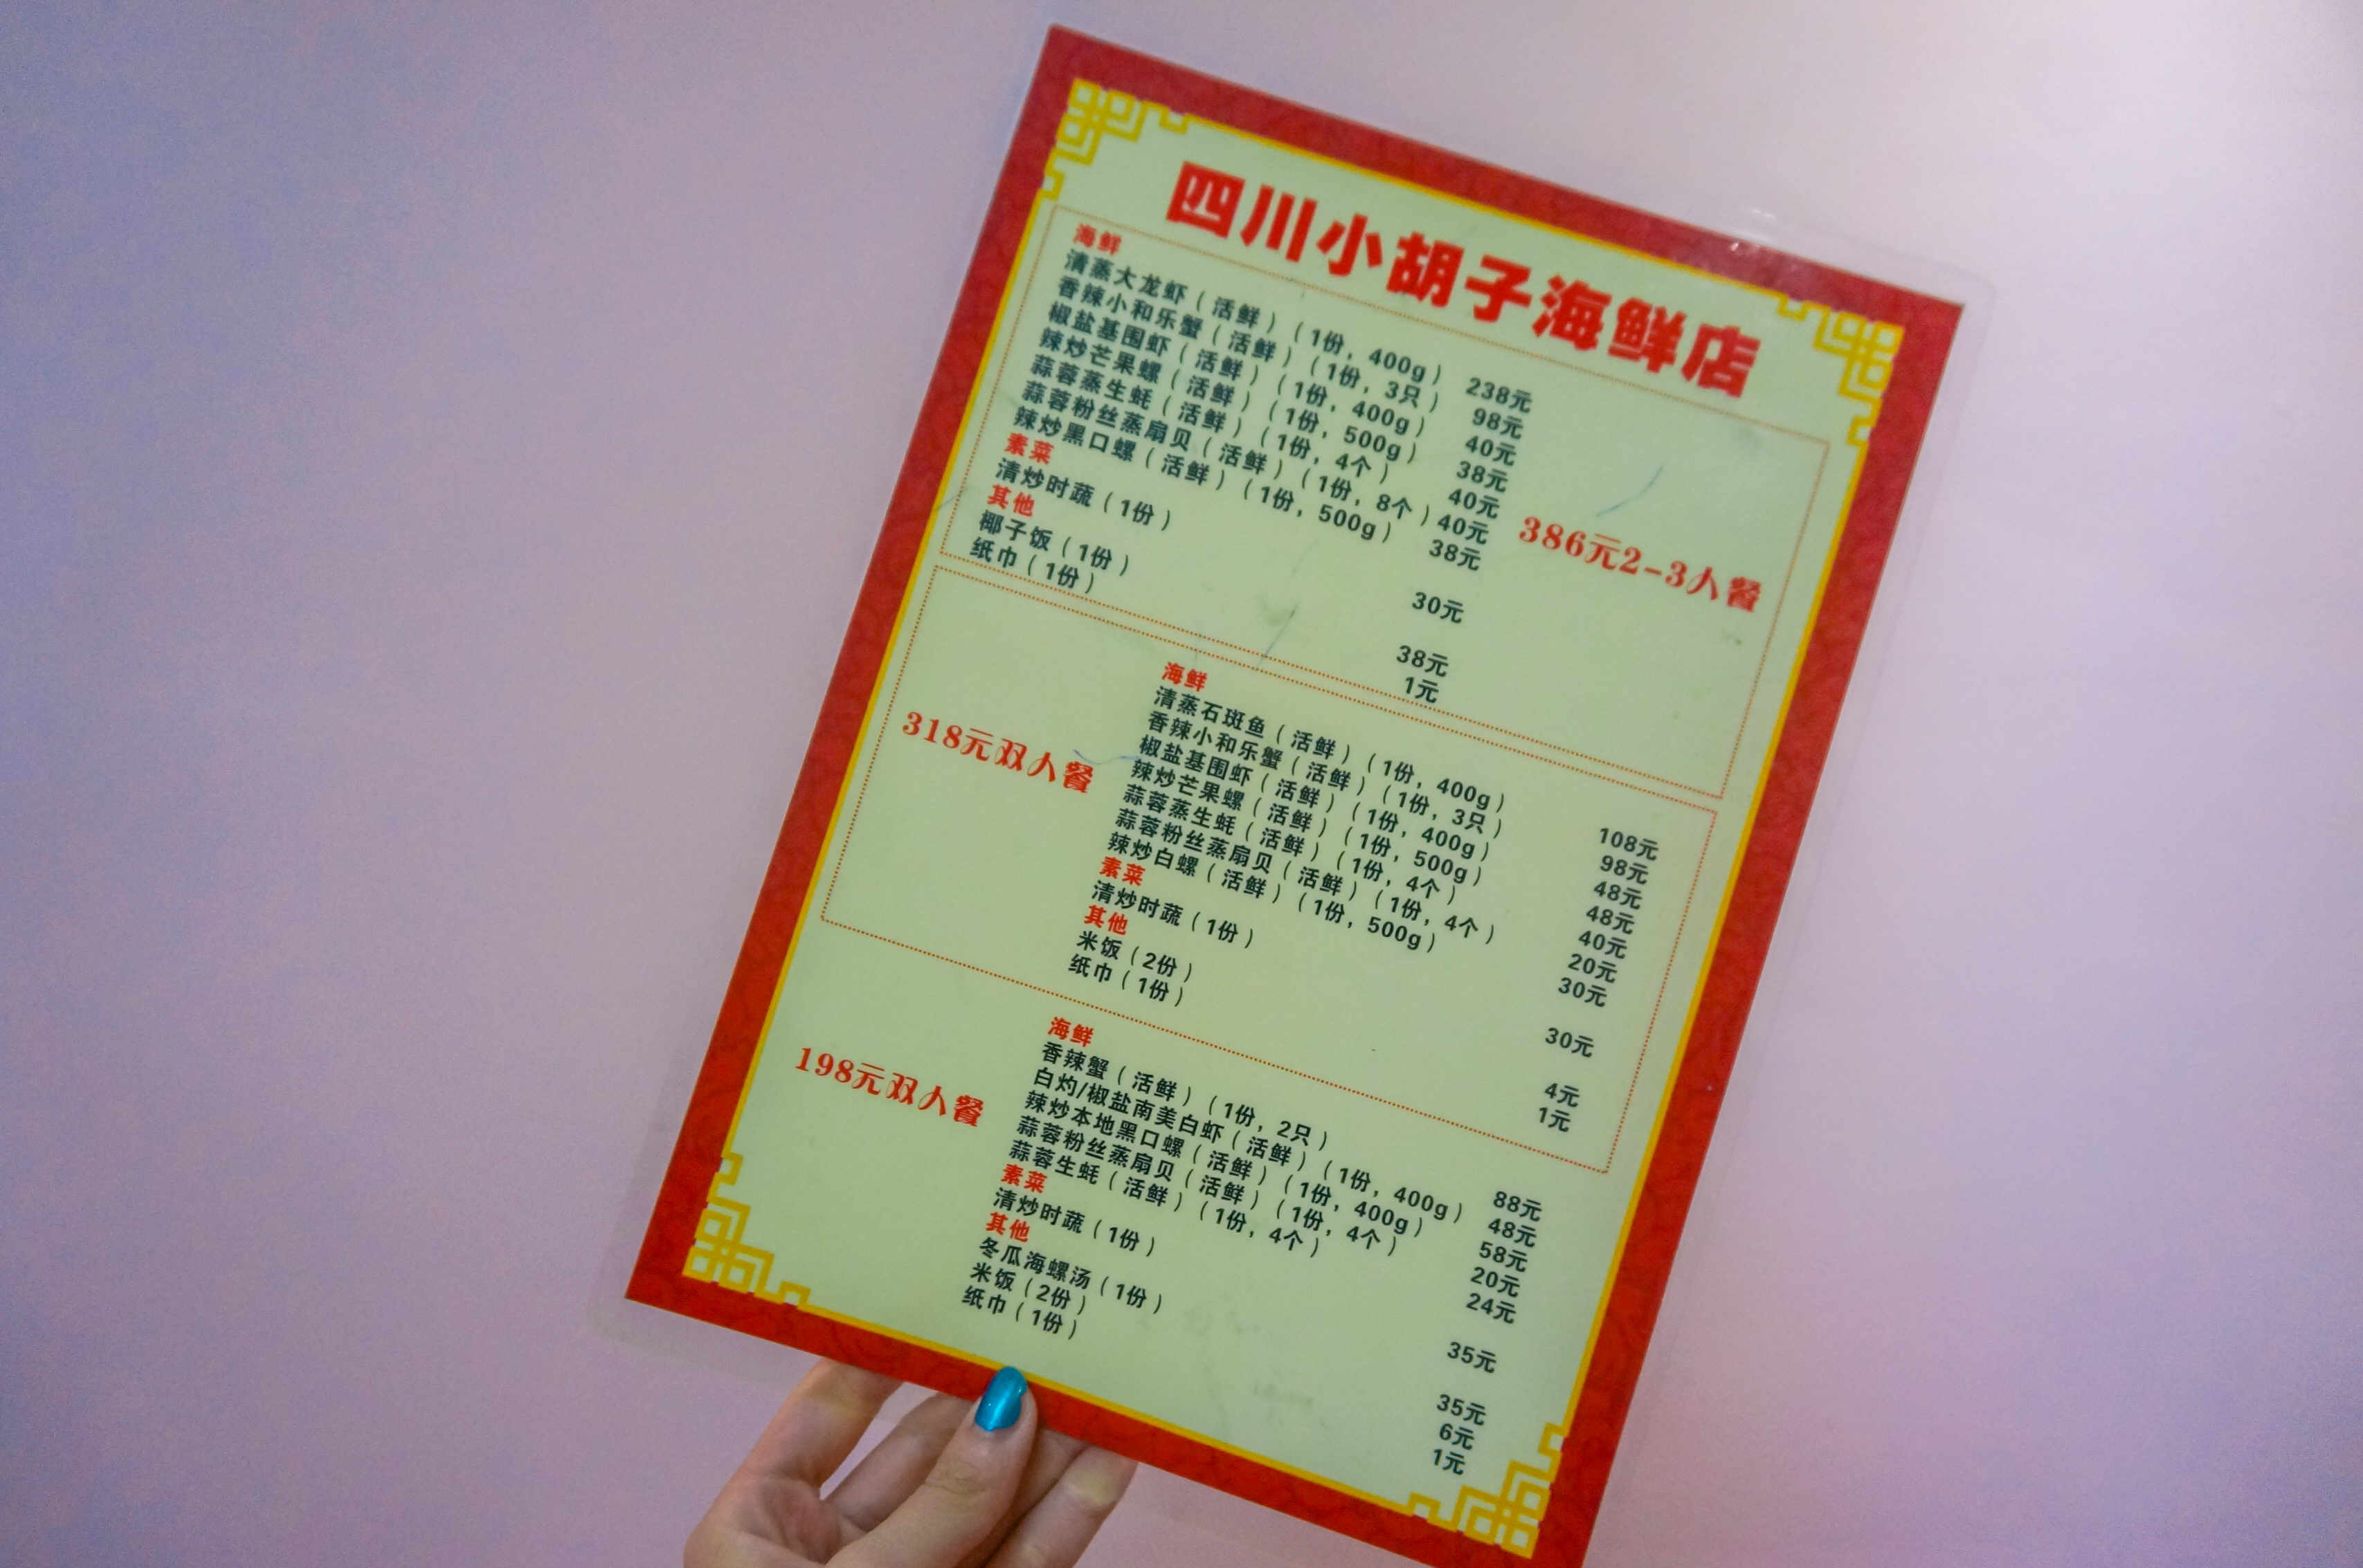 四川小胡子海鲜店
海鲜
清蒸大龙虾（活鲜）（1份，400g） 238元
香辣小和乐蟹（活鲜）（1份，3只） 98元
椒盐基围虾（活鲜）（1份，400g） 40元
辣炒芒果螺（活鲜）（1份，500g） 38元
蒜蓉蒸生蚝（活鲜）（1份，4个） 40元
蒜蓉粉丝蒸扇贝（活鲜）（1份，8个） 40元
辣炒黑口螺（活鲜）（1份，500g） 38元
素菜
清炒时蔬（1份） 30元
其他
椰子饭（1份） 38元
纸巾（1份） 1元
386元2-3人餐
318元双人餐
海鲜
清蒸石斑鱼（活鲜）（1份，400g） 108元
香辣小和乐蟹（活鲜）（1份，3只） 98元
椒盐基围虾（活鲜）（1份，400g） 48元
辣炒芒果螺（活鲜）（1份，500g） 48元
蒜蓉蒸生蚝（活鲜）（1份，4个） 40元
蒜蓉粉丝蒸扇贝（活鲜）（1份，4个） 20元
辣炒白螺（活鲜）（1份，500g） 30元
素菜
清炒时蔬（1份） 30元
其他
米饭（2份） 4元
纸巾（1份） 1元
198元双人餐
海鲜
香辣蟹（活鲜）（1份，2只） 88元
白灼/椒盐南美白虾（活鲜）（1份，400g） 48元
辣炒本地黑口螺（活鲜）（1份，400g） 58元
蒜蓉粉丝蒸扇贝（活鲜）（1份，4个） 20元
蒜蓉生蚝（活鲜）（1份，4个） 24元
素菜
清炒时蔬（1份） 35元
其他
冬瓜海螺汤（1份） 35元
米饭（2份） 6元
纸巾（1份） 1元